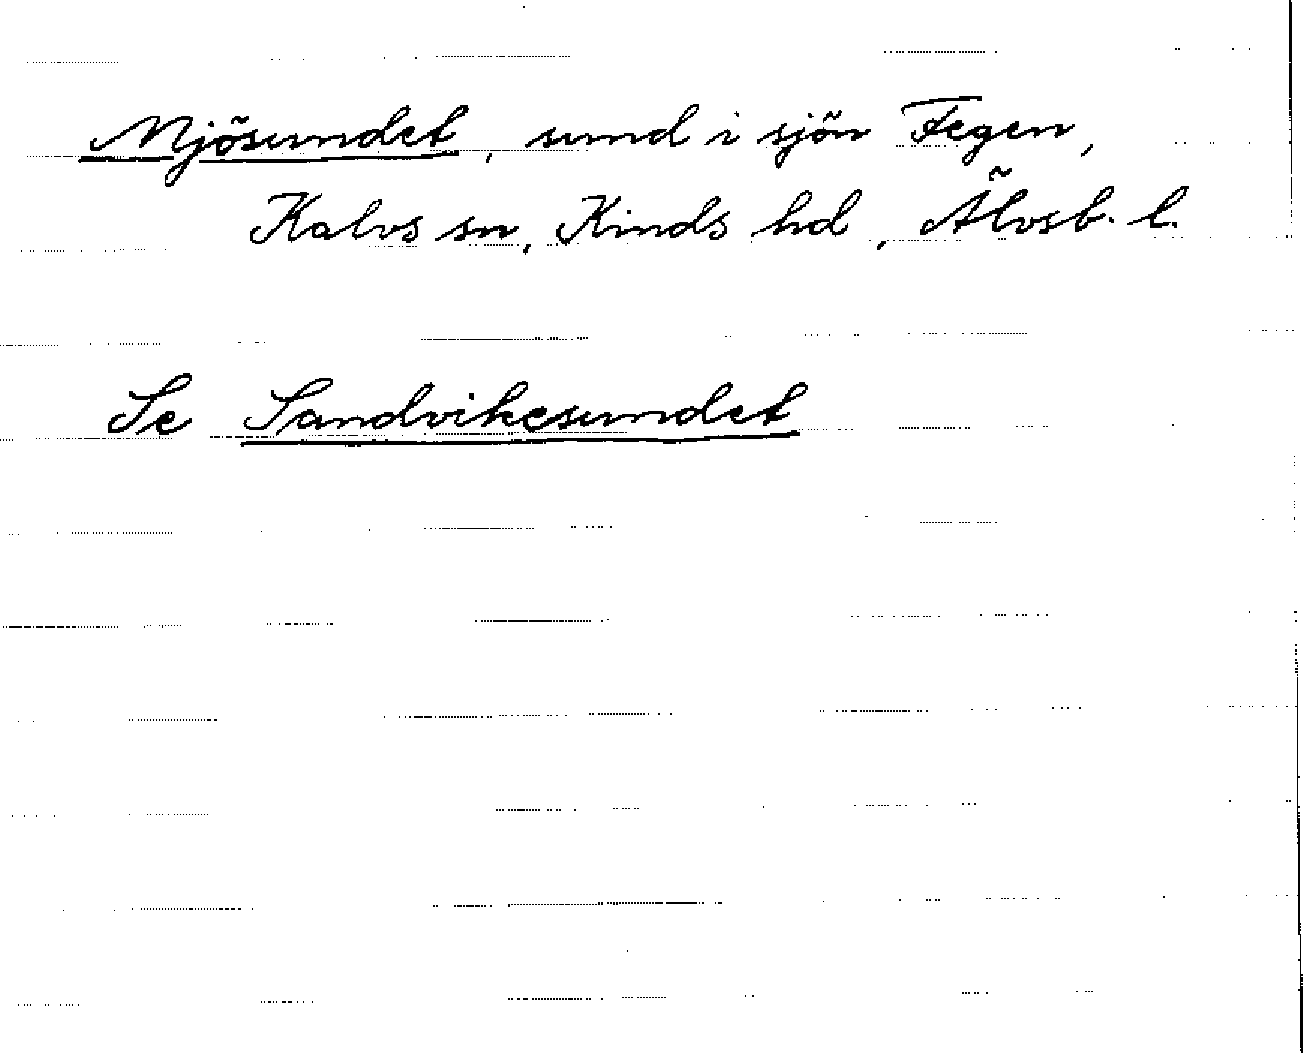 Mjösundet, sund i sjön Fegen,
Kalvs sn, Kinds hd, Älvsb. l.
Se Sandviksesundet